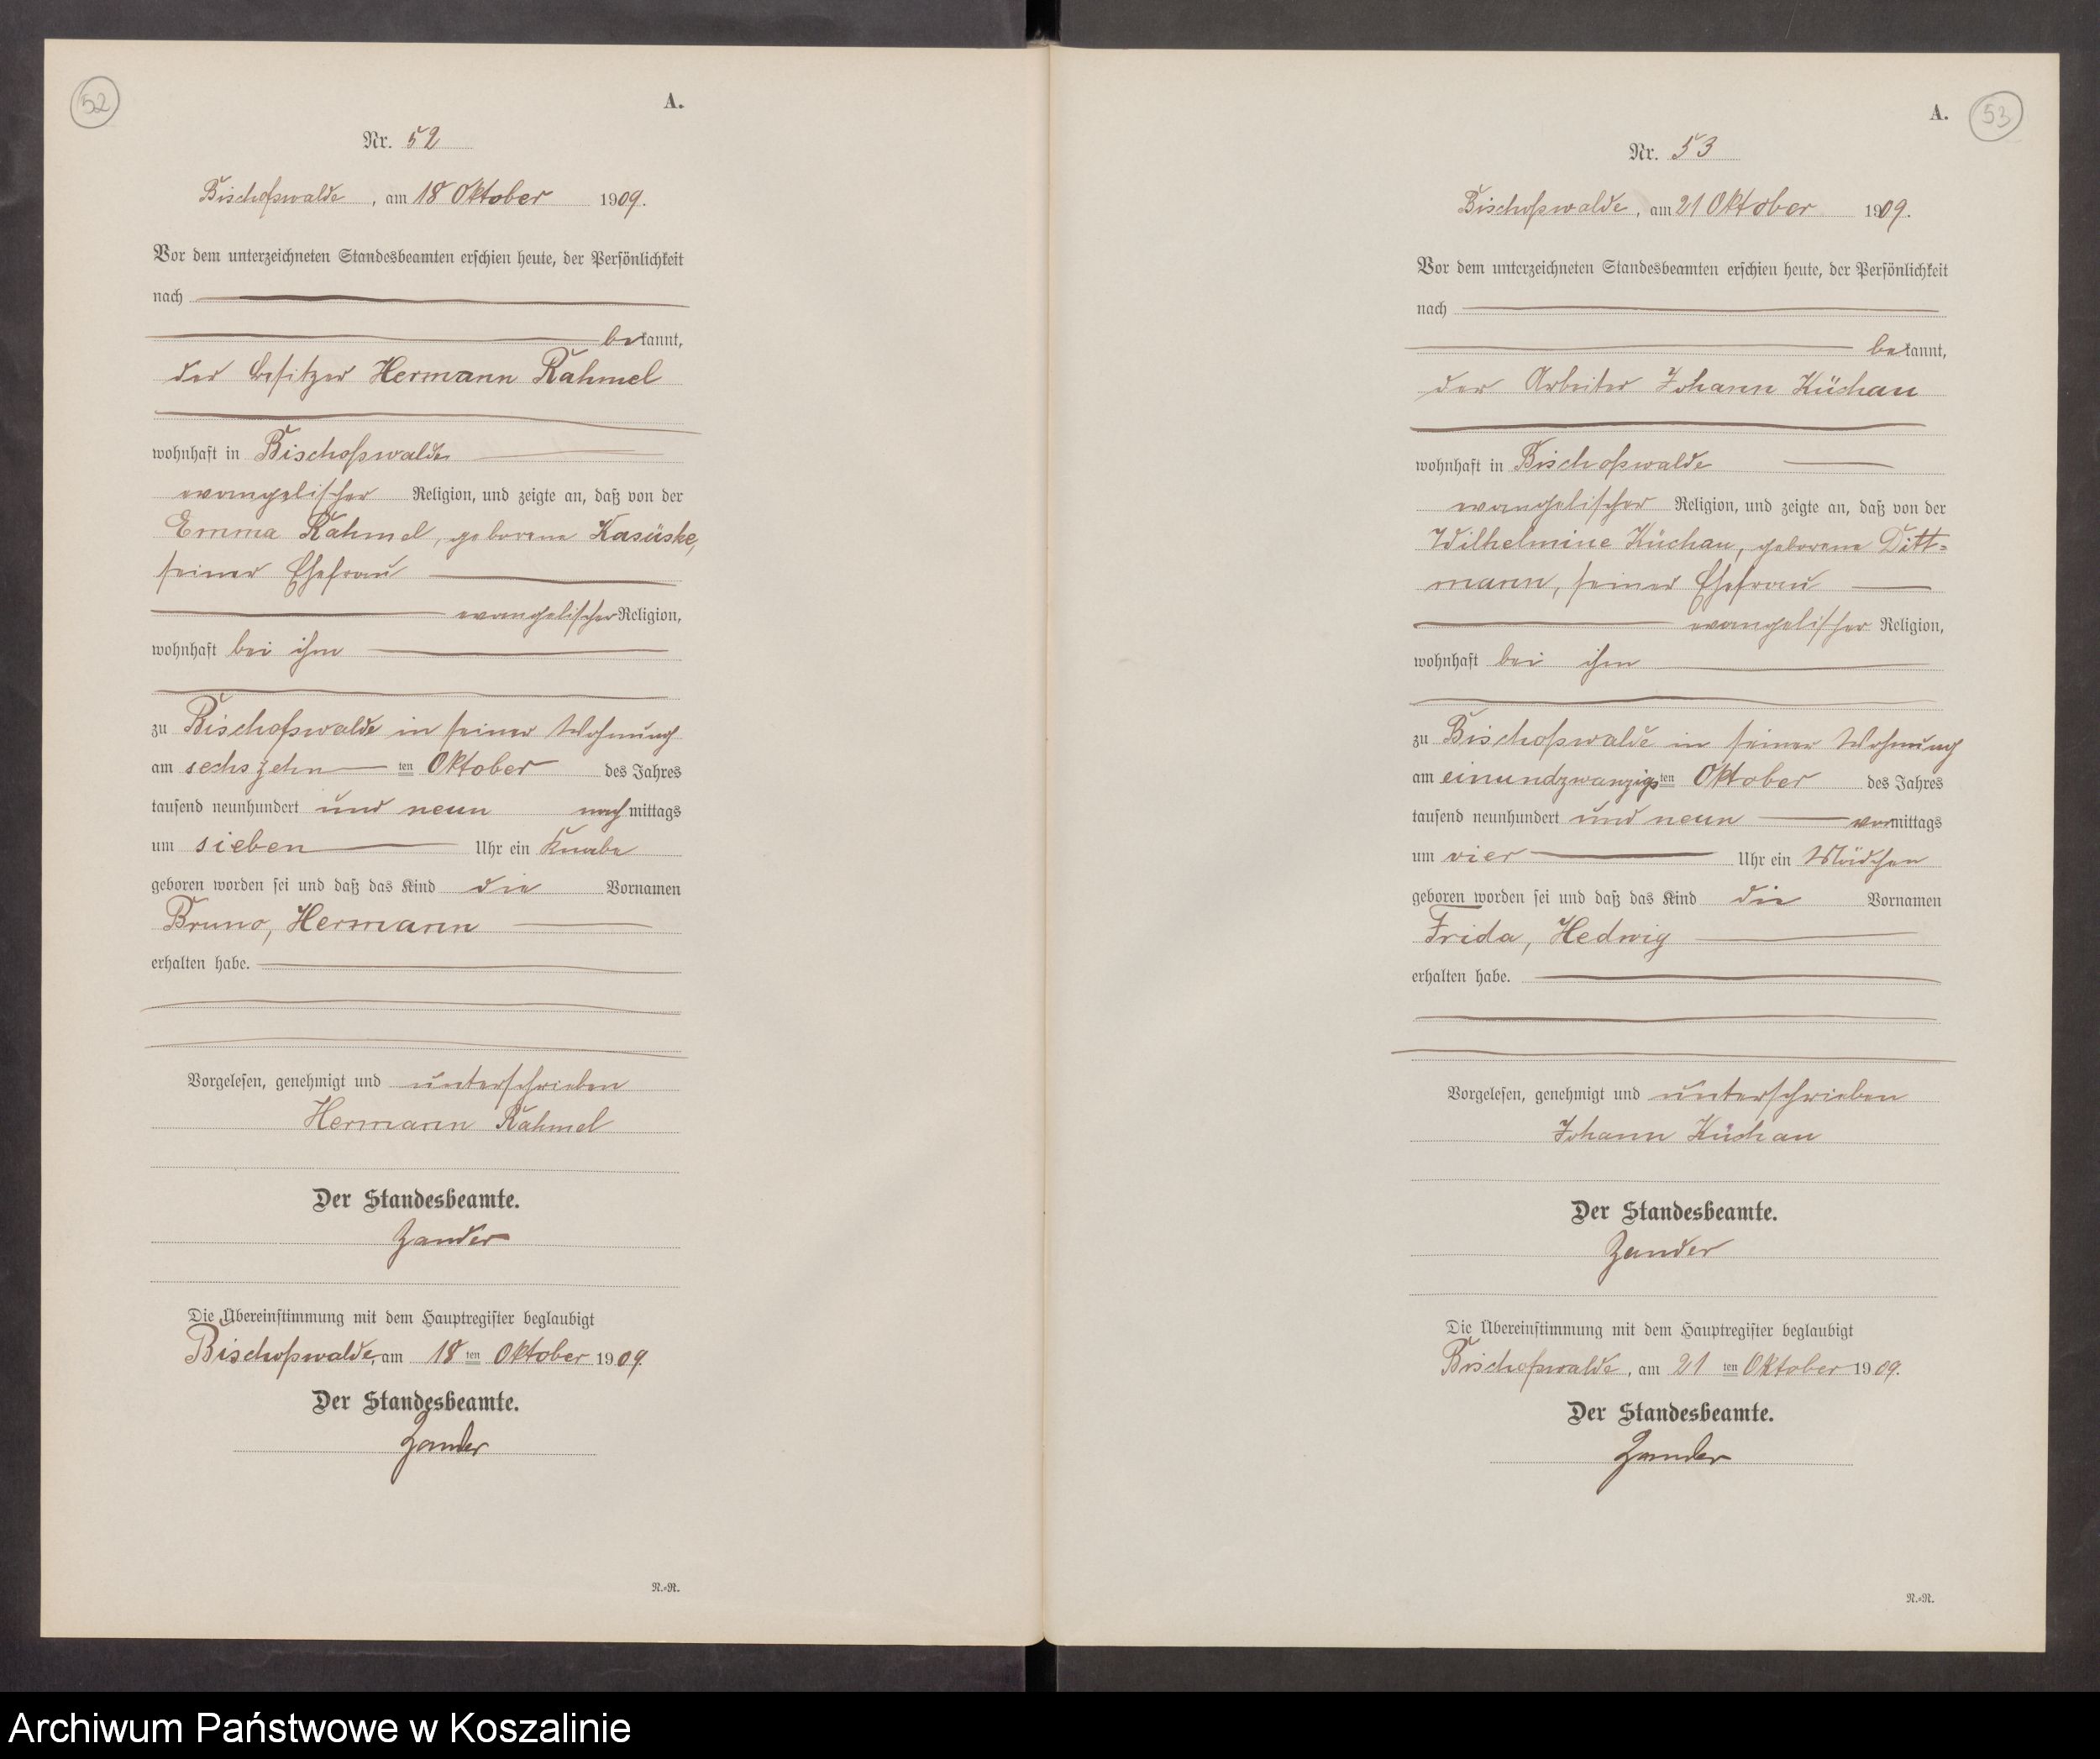 52
A.
Nr. 52
Bischofswalde, am 18 Oktober 1909.
Vor dem unterzeichneten Standesbeamten erschien heute, der Persönlichkeit
nach
bekannt,
der Besitzer Hermann Rahmel
wohnhaft in Bischofswalde
evangelischer Religion, und zeigte an, daß von der
Emma Rahmel, geborene Kasüske,
seiner Ehefrau
evangelischer Religion,
wohnhaft bei ihm
zu Bischofswalde in seiner Wohnung
am sechszehn ten Oktober des Jahres
tausend neunhundert und neun nachmittags
um sieben Uhr ein Knabe
geboren worden sei und daß das Kind die Vornamen
Bruno, Hermann
erhalten habe.
Vorgelesen, genehmigt und unterschrieben
Hermann Rahmel
Der Standesbeamte.
Zander
Die Übereinstimmung mit dem Hauptregister beglaubigt
Bischofswalde, am 18 ten Oktober 1909.
Der Standesbeamte.
Zander
N.=R.
A.
53
Nr. 53
Bischofswalde, am 21 Oktober 1909.
Vor dem unterzeichneten Standesbeamten erschien heute, der Persönlichkeit
nach
bekannt,
der Arbeiter Johann Küchau
wohnhaft in Bischofswalde
evangelischer Religion, und zeigte an, daß von der
Wilhelmine Küchau, geborene Ditt=
mann, seiner Ehefrau
evangelischer Religion,
wohnhaft bei ihm
zu Bischofswalde in seiner Wohnung
am einundzwanzigsten Oktober des Jahres
tausend neunhundert und neun vormittags
um vier Uhr ein Mädchen
geboren worden sei und daß das Kind die Vornamen
Frida, Hedwig
erhalten habe.
Vorgelesen, genehmigt und unterschrieben
Johann Küchau
Der Standesbeamte.
Zander
Die Übereinstimmung mit dem Hauptregister beglaubigt
Bischofswalde, am 21 ten Oktober 1909.
Der Standesbeamte.
Zander
N.=R.
Archiwum Państwowe w Koszalinie